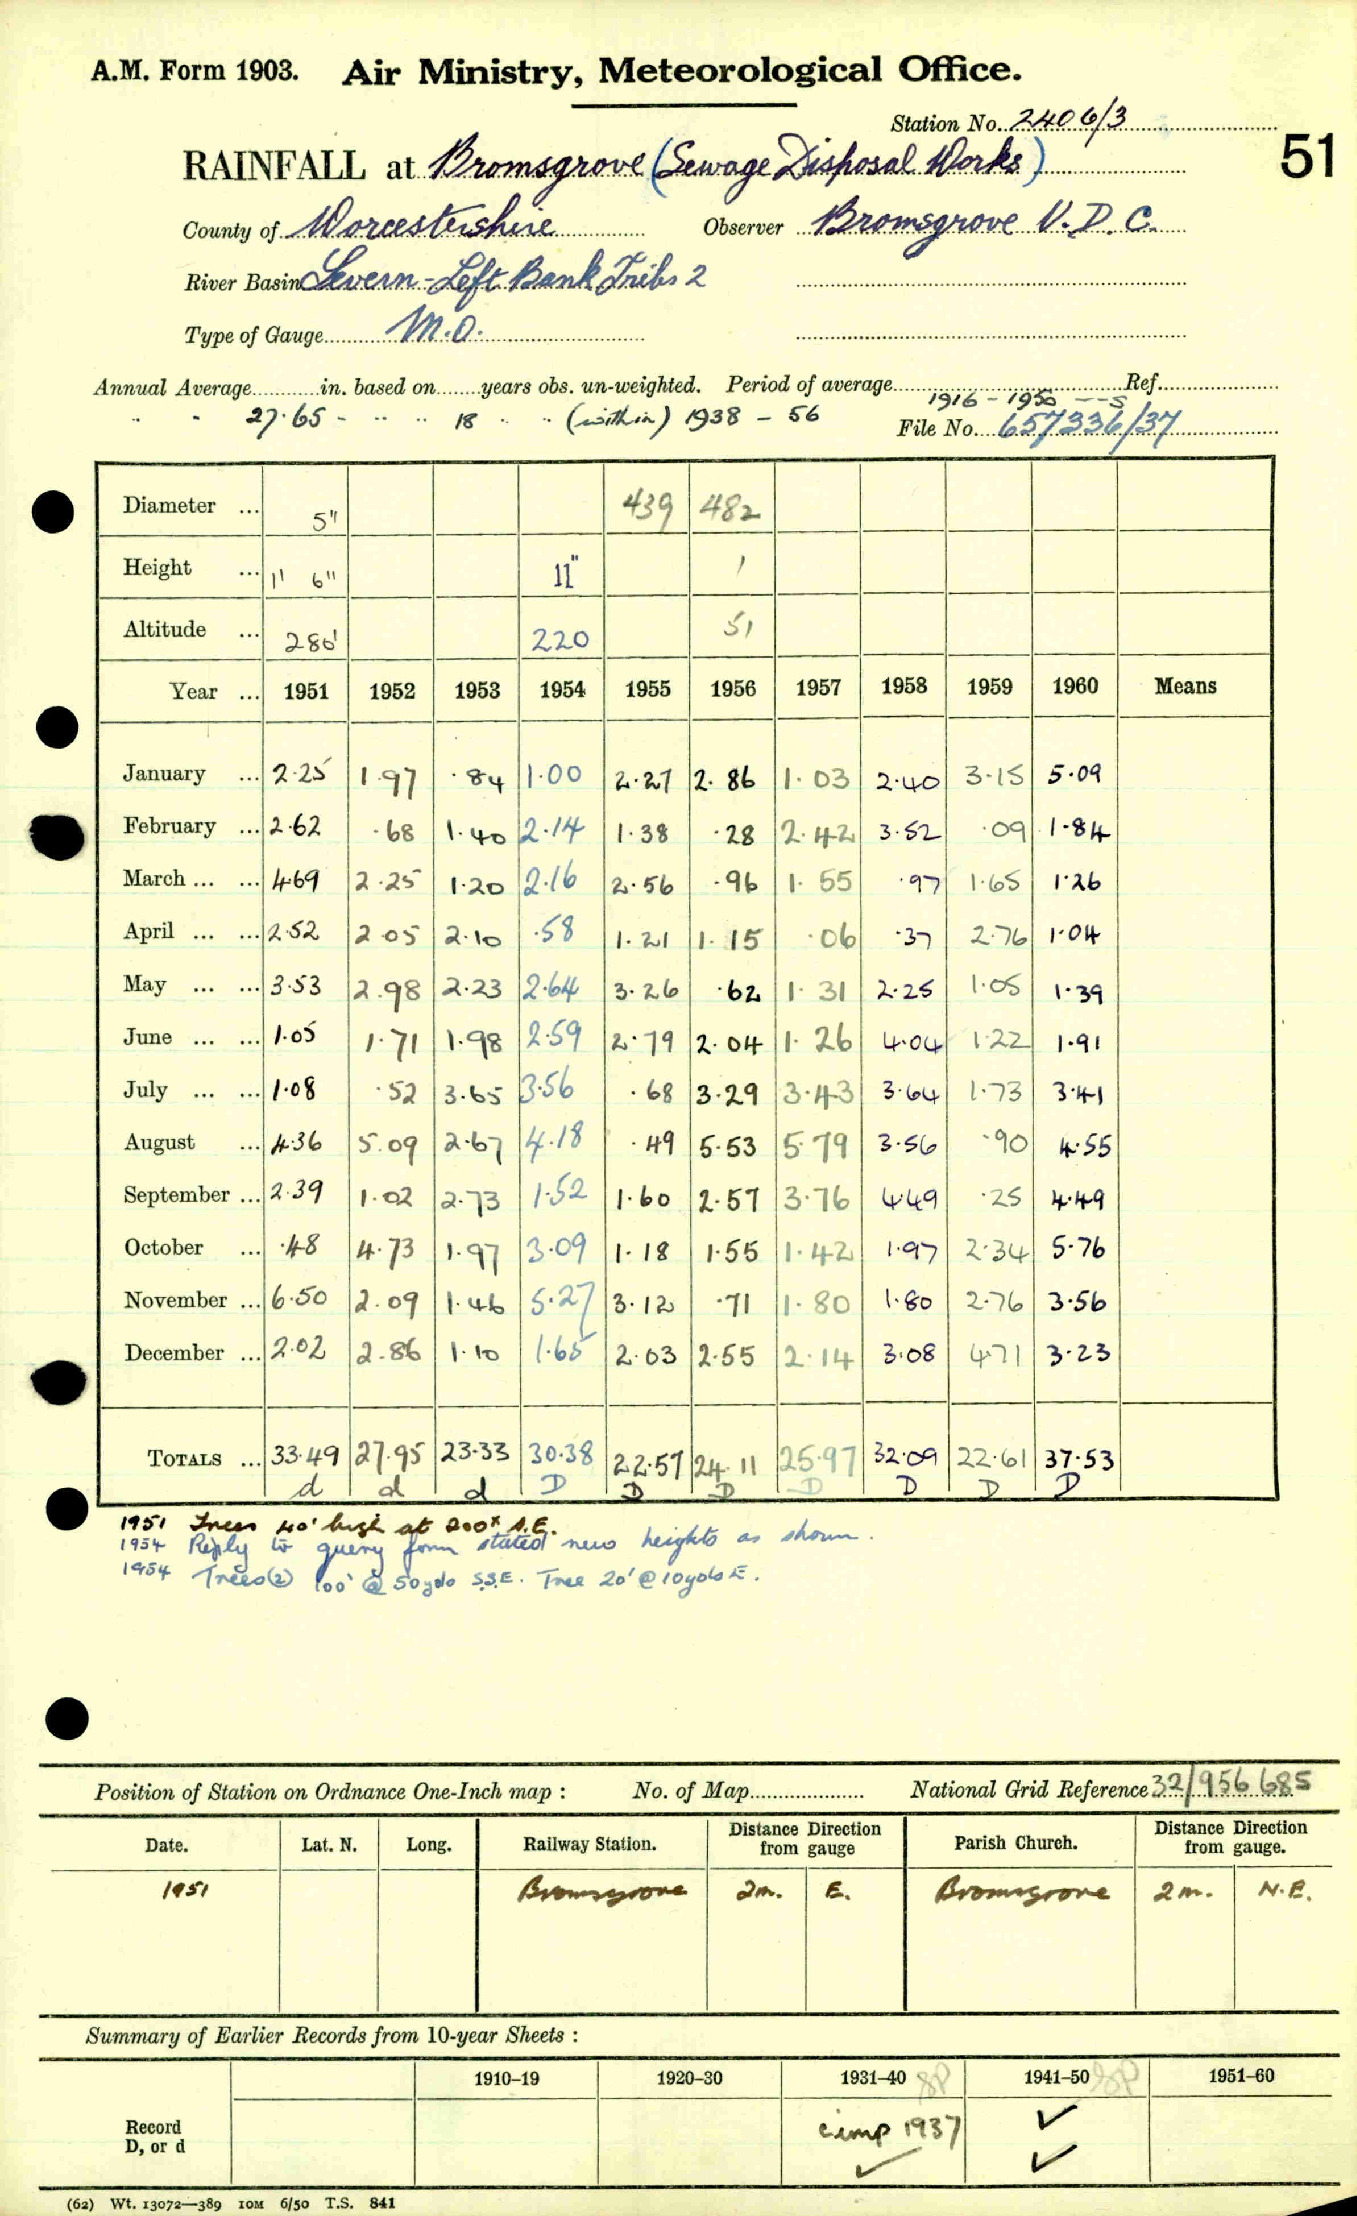 A.M. Form 1903. Air Ministry, Meteorological Office.
Station No. 2406/3
51
RAINFALL at Bromsgrove (Sewage Disposal Works)
County of Worcestershire Observer Bromsgrove U.D.C.
River Basin Severn - Left Bank Tribs 2
Type of Gauge M.O.
Annual Average in. based on years obs. un-weighted. Period of average 1916 - 1950 -- S Ref.
" " 27.65 - " " 18 " " (within) 1938 - 56 File No. 657336/37
Diameter ... 5" 439 482
Height ... 1' 6" 11" 1
Altitude ... 280' 220 51
Year ... 1951 1952 1953 1954 1955 1956 1957 1958 1959 1960 Means
January ... 2.25 1.97 .84 1.00 2.27 2.86 1.03 2.40 3.15 5.09
February ... 2.62 .68 1.40 2.14 1.38 .28 2.42 3.52 .09 1.84
March ... ... 4.69 2.25 1.20 2.16 2.56 .96 1.55 .97 1.65 1.26
April ... ... 2.52 2.05 2.10 .58 1.21 1.15 .06 .37 2.76 1.04
May ... ... 3.53 2.98 2.23 2.64 3.26 .62 1.31 2.25 1.05 1.39
June ... ... 1.05 1.71 1.98 2.59 2.79 2.04 1.26 4.04 1.22 1.91
July ... ... 1.08 .52 3.65 3.56 .68 3.29 3.43 3.64 1.73 3.41
August ... 4.36 5.09 2.67 4.18 .49 5.53 5.79 3.56 .90 4.55
September ... 2.39 1.02 2.73 1.52 1.60 2.57 3.76 4.49 .25 4.49
October ... .48 4.73 1.97 3.09 1.18 1.55 1.42 1.97 2.34 5.76
November ... 6.50 2.09 1.46 5.27 3.12 .71 1.80 1.80 2.76 3.56
December ... 2.02 2.86 1.10 1.65 2.03 2.55 2.14 3.08 4.71 3.23
TOTALS ... 33.49 27.95 23.33 30.38 22.57 24.11 25.97 32.09 22.61 37.53
d d d D D D D D D D
1951 Trees 40' high at 200x S.E.
1954 Reply to query form stated new heights as shown.
1954 Trees(2) 100' @ 50yds S.S.E. Tree 20' @ 10yds E.
Position of Station on Ordnance One-Inch map : No. of Map National Grid Reference 32/956 685
Date. Lat. N. Long. Railway Station. Distance Direction from gauge Parish Church. Distance Direction from gauge.
1951 Bromsgrove 2m. E. Bromsgrove 2m. N.E.
Summary of Earlier Records from 10-year Sheets :
1910–19 1920–30 1931–40 1941–50 1951–60
Record D, or d cimp 1937 ✓ ✓ ✓
(62) Wt. 13072—389 10M 6/50 T.S. 841